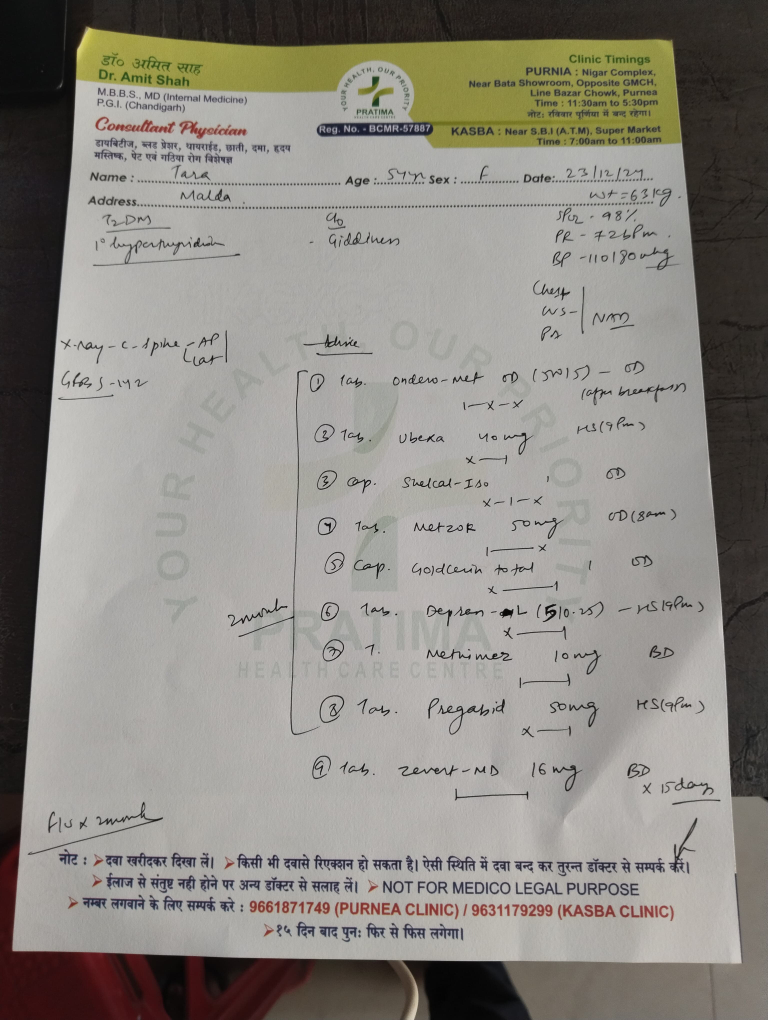 डॉ० अमित साह
Dr. Amit Shah
M.B.B.S., MD (Internal Medicine)
P.G.I. (Chandigarh)
Consultant Physician
डायबिटीज, ब्लड प्रेशर, थायराईड, छाती, दमा, हृदय
मस्तिष्क, पेट एवं गठिया रोग विशेषज्ञ
YOUR HEALTH, OUR PRIORITY
PRATIMA
HEALTH CARE CENTRE
Reg. No. - BCMR-57887
Clinic Timings
PURNIA : Nigar Complex,
Near Bata Showroom, Opposite GMCH,
Line Bazar Chowk, Purnea
Time : 11:30am to 5:30pm
नोट: रविवार पूर्णिया में बन्द रहेगा।
KASBA : Near S.B.I (A.T.M), Super Market
Time : 7:00am to 11:00am
Name : Tara Age : 54yr Sex : F Date: 23/12/24
Address Malda. wt = 63 kg.
T2DM
1° hyperthyroidism
c/o
- Giddiness
SPO2 - 98%
PR - 72 bPm.
BP - 110/80 mmhg
Chest
CVS-
PA
NAD
X-ray - C-Spine - AP
Lat
GRBS-142
Advice
① Tab. Ondero-Met OD (5/1000) - OD
(after breakfast)
1-x-x
② Tab. Ubexa 40mg HS(9Pm)
x—1
③ Cap. Shelcal-Iso 1 OD
x-1-x
④ Tab. Metzok 50mg OD(8am)
1—x
⑤ Cap. Goldcerin total 1 OD
x—1
⑥ Tab. Depran-L (5/0.25) - HS(9Pm)
x—1
⑦ T. Methimez 10mg BD
1—1
⑧ Tab. Pregabid 50mg HS(9Pm)
x—1
2 month
⑨ Tab. Zevert-MD 16mg BD
x 15 days
1—1
F/U x 2 month
YOUR HEALTH, OUR PRIORITY
PRATIMA
HEALTH CARE CENTRE
नोट : ➤दवा खरीदकर दिखा लें। ➤किसी भी दवासे रिएक्शन हो सकता है। ऐसी स्थिति में दवा बन्द कर तुरन्त डॉक्टर से सम्पर्क करें।
➤ईलाज से संतुष्ट नही होने पर अन्य डॉक्टर से सलाह लें। ➤ NOT FOR MEDICO LEGAL PURPOSE
➤नम्बर लगवाने के लिए सम्पर्क करे : 9661871749 (PURNEA CLINIC) / 9631179299 (KASBA CLINIC)
➤१५ दिन बाद पुन: फिर से फिस लगेगा।